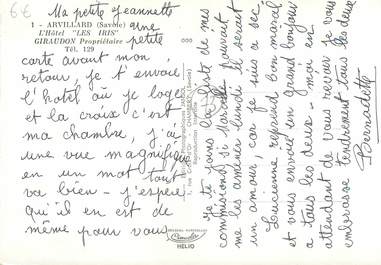 6€
Ma petite Jeannette
1 - ARVILLARD (Savoie)
L'Hôtel "LES IRIS"
GIRAUDON Propriétaire
Tél. 129
une
petite
carte avant mon
retour, je t'envoie
l'hotel où je loge
et la croix c'est
ma chambre, j'ai
une vue magnifique
en un mot tout
va bien - j'espère
qu'il en est de
même pour vous
HELIO
je te joins la liste de mes
commissions si Marcel pouvait
me les amener lundi il serait
un amour, car je suis a sec.
Lucienne reprend bon moral
et vous envoie un grand bonjour
a tous les deux - moi en
attendant de vous revoir je vous
embrasse tendrement tous les deux
Bernadette